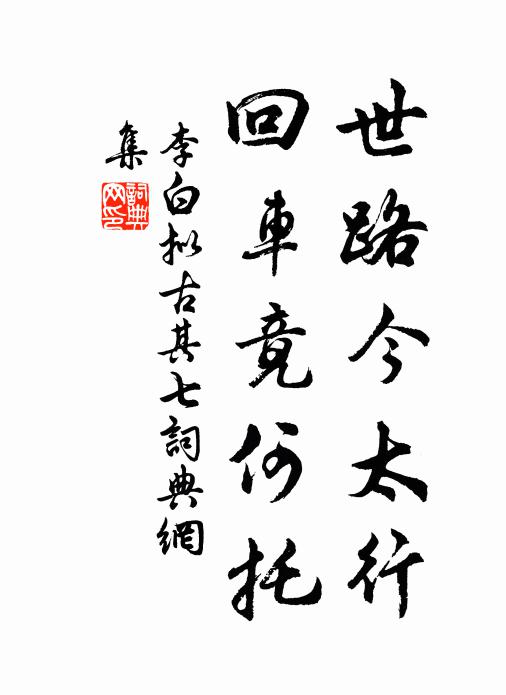 世路今太行
回車竟何托
李白拟古其七詞典網
集
詞典
网印